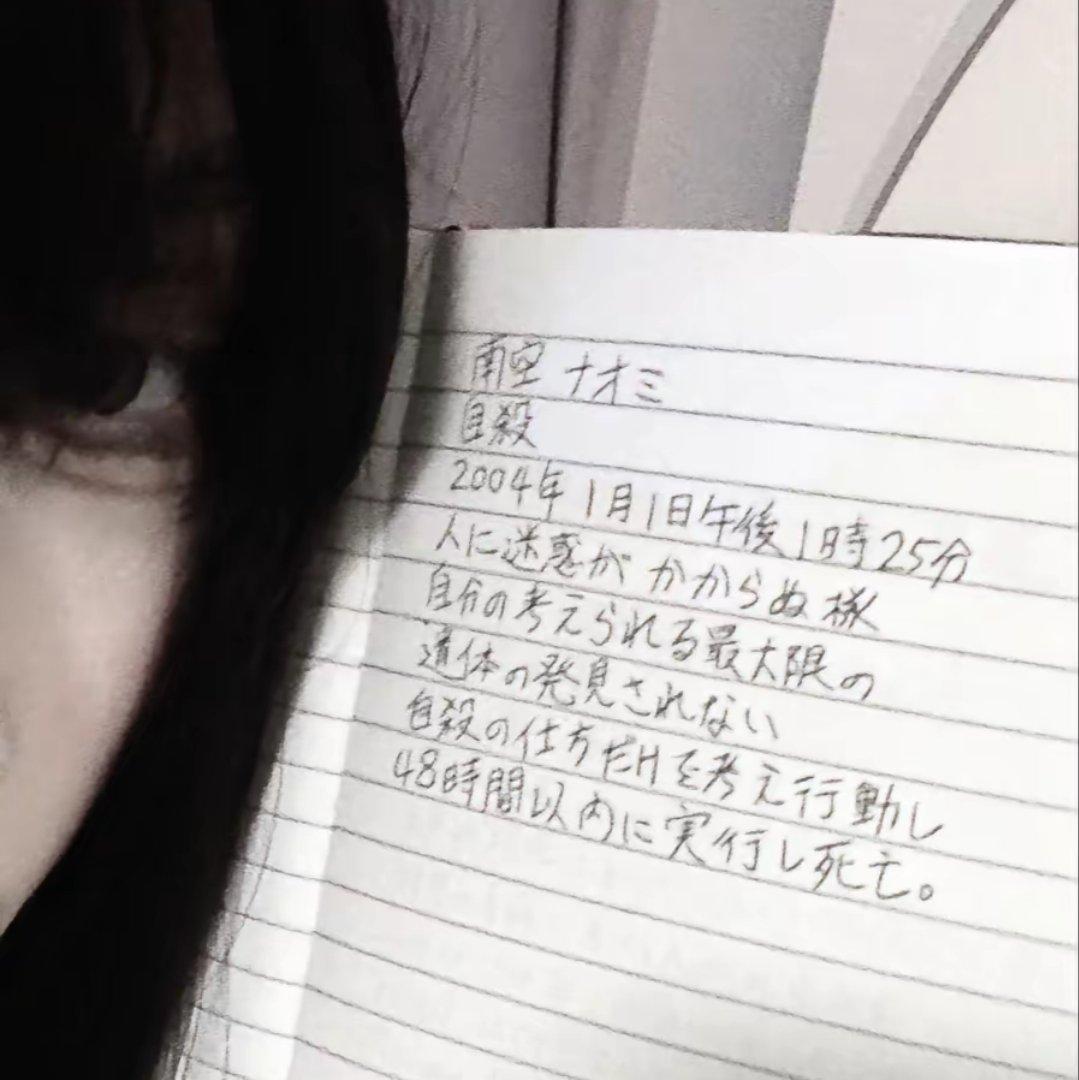 南空 ナオミ
自殺
2004年 1月1日午後1時25分
人に迷惑が かからぬ様
自分の考えられる最大限の
遺体の発見されない
自殺の仕方だけを考え行動し
48時間以内に実行し死亡。